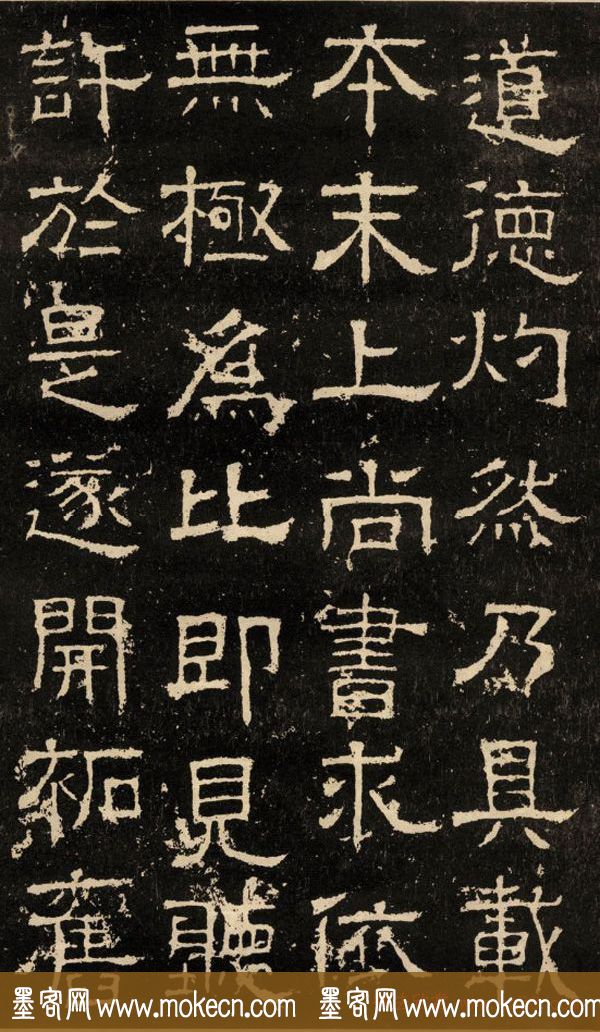 道德灼然乃具載
本末上尚書求依
無極爲比即見聽
許於是遂開袥舊
墨客网 www.mokecn.com 墨客网 www.mokecn.com